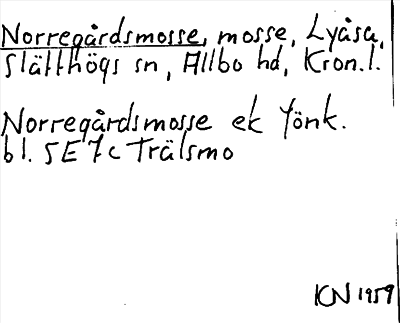 Norregårdsmosse, mosse, Lyåsa,
Slätthögs sn, Allbo hd, Kron.l.
Norregårdsmosse ek Jönk.
bl. 5E 7c Trälsmo
KN 1959